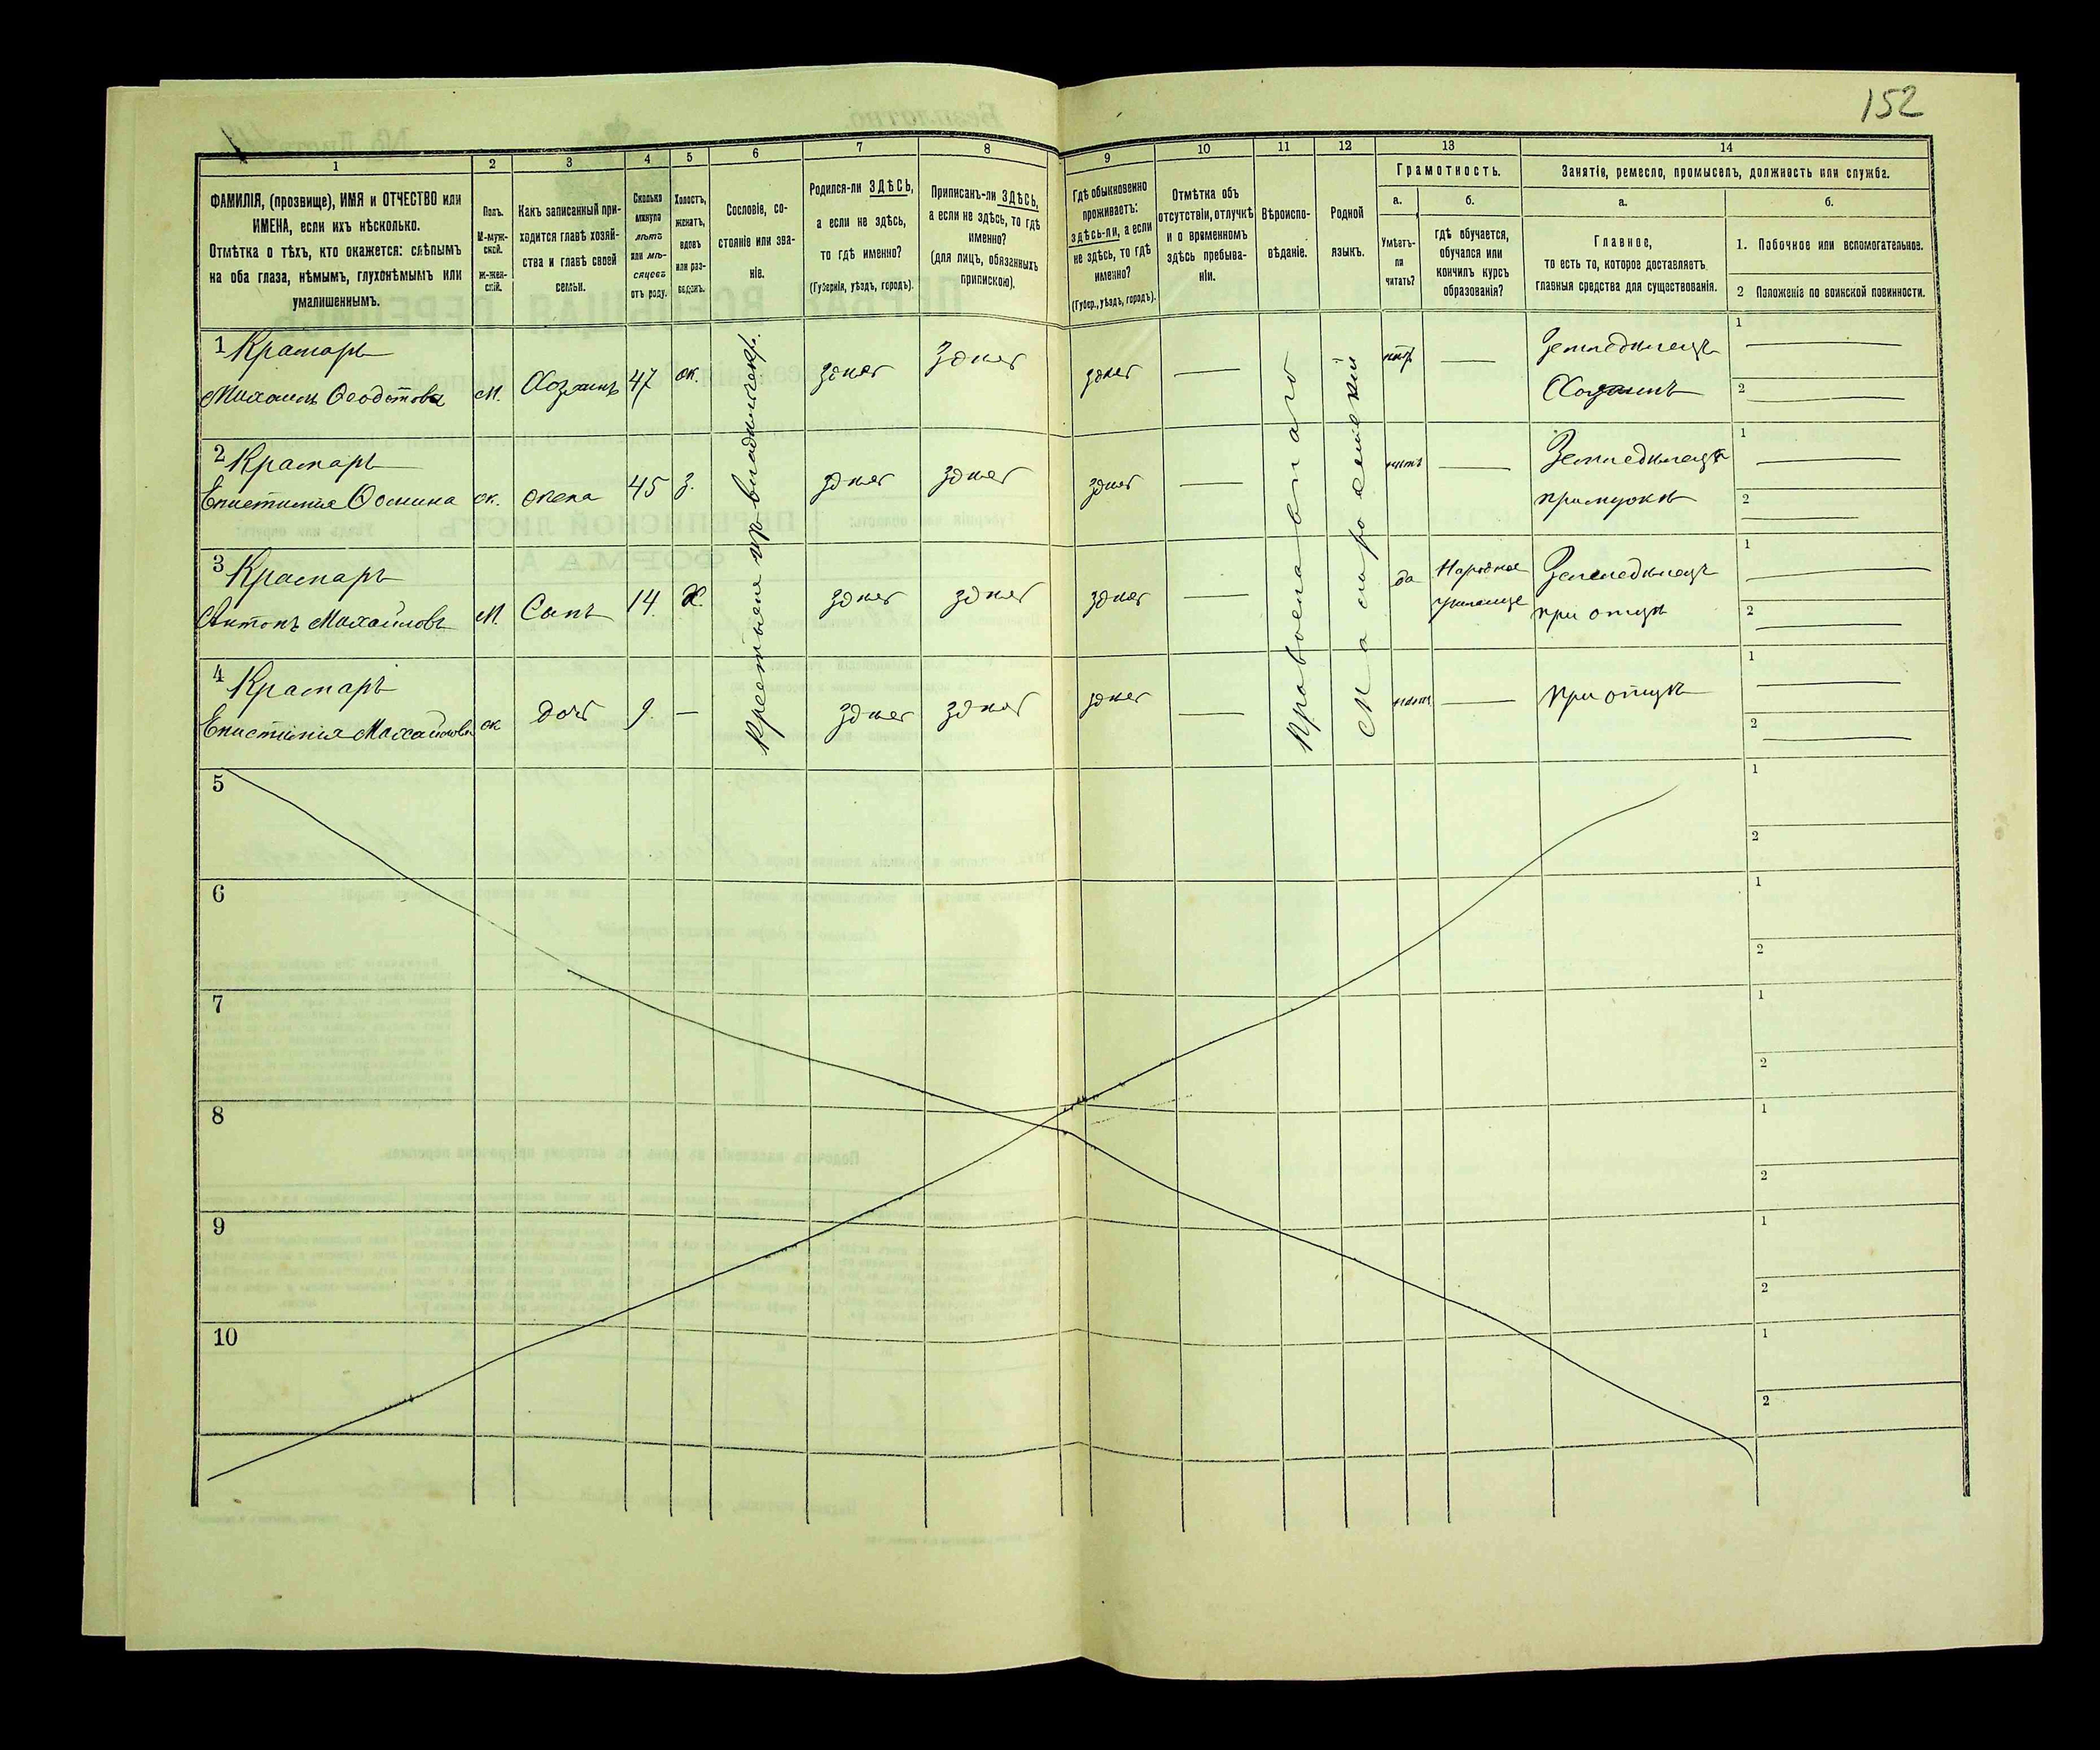 152
1
2
3
4
5
6
7
8
9
10
11
12
13
14
ФАМИЛІЯ, (прозвище), ИМЯ и ОТЧЕСТВО или
ИМЕНА, если ихъ нѣсколько.
Отмѣтка о тѣхъ, кто окажется: слѣпымъ
на оба глаза, нѣмымъ, глухонѣмымъ или
умалишеннымъ.
Полъ.
М-муж-
ской.
Ж-жен-
скій.
Какъ записанный при-
ходится главѣ хозяй-
ства и главѣ своей
семьи.
Сколько
минуло
лѣтъ
или мѣ-
сяцевъ
отъ роду.
Холостъ,
женатъ,
вдовъ
или раз-
веденъ.
Сословіе, со-
стояніе или зва-
ніе.
Родился-ли ЗДѢСЬ,
а если не здѣсь,
то гдѣ именно?
(Губернія, уѣздъ, городъ).
Приписанъ-ли ЗДѢСЬ,
а если не здѣсь, то гдѣ
именно?
(для лицъ, обязанныхъ
припискою).
Гдѣ обыкновенно
проживаетъ:
здѣсь-ли, а если
не здѣсь, то гдѣ
именно?
(Губер., уѣздъ, городъ).
Отмѣтка объ
отсутствіи, отлучкѣ
и о временномъ
здѣсь пребыва-
ніи.
Вѣроиспо-
вѣданіе.
Родной
языкъ.
Грамотность.
а.
Умѣетъ-
ли
читать?
б.
гдѣ обучается,
обучался или
кончилъ курсъ
образованія?
Занятіе, ремесло, промыселъ, должность или служба.
а.
Главное,
то есть то, которое доставляетъ
главныя средства для существованія.
б.
1. Побочное или вспомогательное.
2 Положеніе по воинской повинности.
1 Крамарь
Михаилъ Феодотовъ М. Хозяинъ 47 ж. здѣсь здѣсь здѣсь — нѣтъ — Земледѣлецъ
Хозяинъ
1
2
2 Крамарь
Епистимія Фомина ж. жена 45 з. здѣсь здѣсь здѣсь — нѣтъ — Земледѣлецъ
при мужѣ
1
2
3 Крамарь
Антонъ Михайловъ М. Сынъ 14 х. здѣсь здѣсь здѣсь — да Народное училище Земледѣлецъ
при отцѣ
1
2
4 Крамарь
Епистимія Михайлова ж дочь 9. — здѣсь здѣсь здѣсь — нѣтъ — при отцѣ
1
2
Православнаго
Малороссійскій
5
1
2
6
1
2
7
1
2
8
1
2
9
1
2
10
1
2